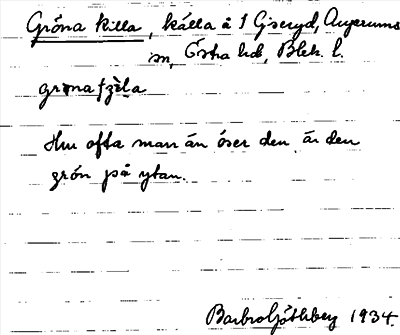 Gröna Killa, källa å 1 Giseryd, Augerums
sn, Östra hd, Blek. l.
grønafʒɛ̀la
Hur ofta man än öser den, är den
grön på ytan.
Barbro Ljóthberg 1934.